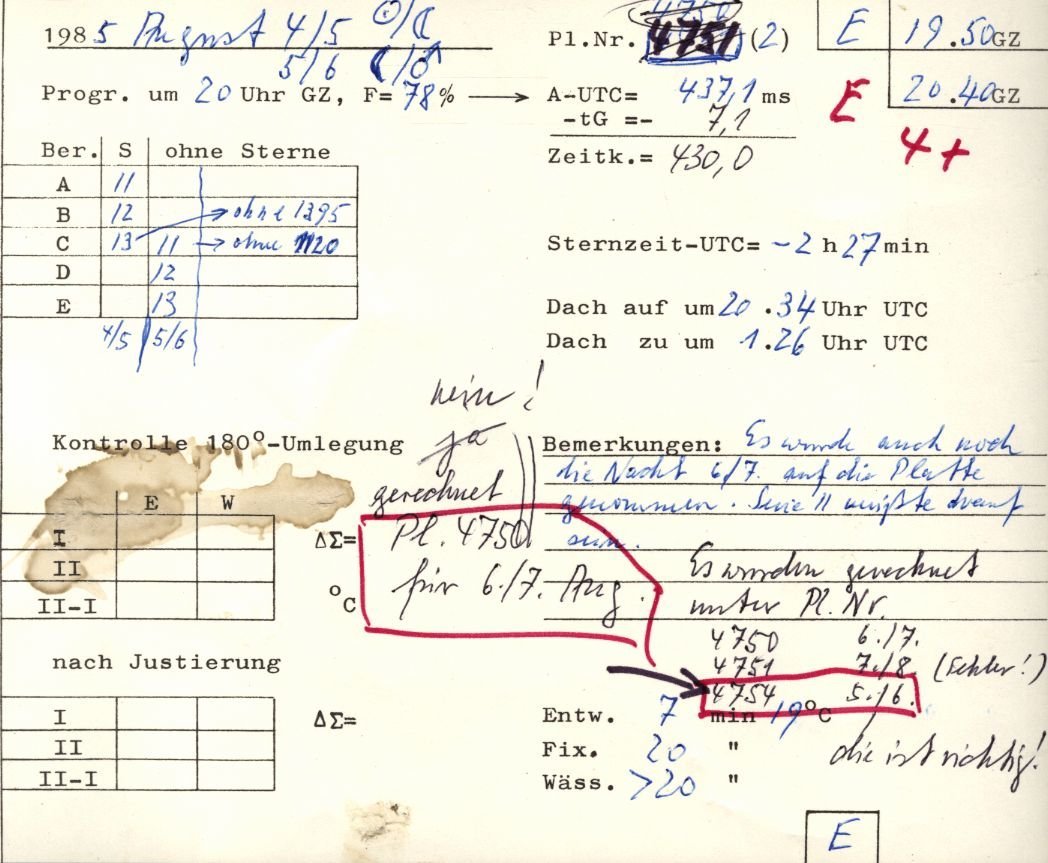 1985 August 4/5 ☉/☾
5/6 ☾/♂
Progr. um 20 Uhr GZ, F= 78% →
Pl.Nr. 4750
4751 (2)
E 19.50GZ
20.40GZ
E
4+
A-UTC= 437,1 ms
-tG =- 7,1
Zeitk.= 430,0
Ber. S ohne Sterne
A 11
B 12 → ohne 1395
C 13 11 → ohne 1120
D 12
E 13
4/5 5/6
Sternzeit-UTC= -2 h 27 min
Dach auf um 20.34 Uhr UTC
Dach zu um 1.26 Uhr UTC
nein!
Kontrolle 180°-Umlegung ja
gerechnet
E W
I ΔΣ= Pl. 4750
II für 6./7. Aug.
II-I °C
Bemerkungen: Es wurde auch noch
die Nacht 6/7. auf die Platte
genommen. Serie 11 müßte drauf
sein.
Es wurden gerechnet
unter Pl. Nr.
4750 6./7.
4751 7./8. (Fehler!)
4754 5./6.
die ist richtig!
nach Justierung
I ΔΣ=
II
II-I
Entw. 7 min 19°C
Fix. 20 "
Wäss. >20 "
E